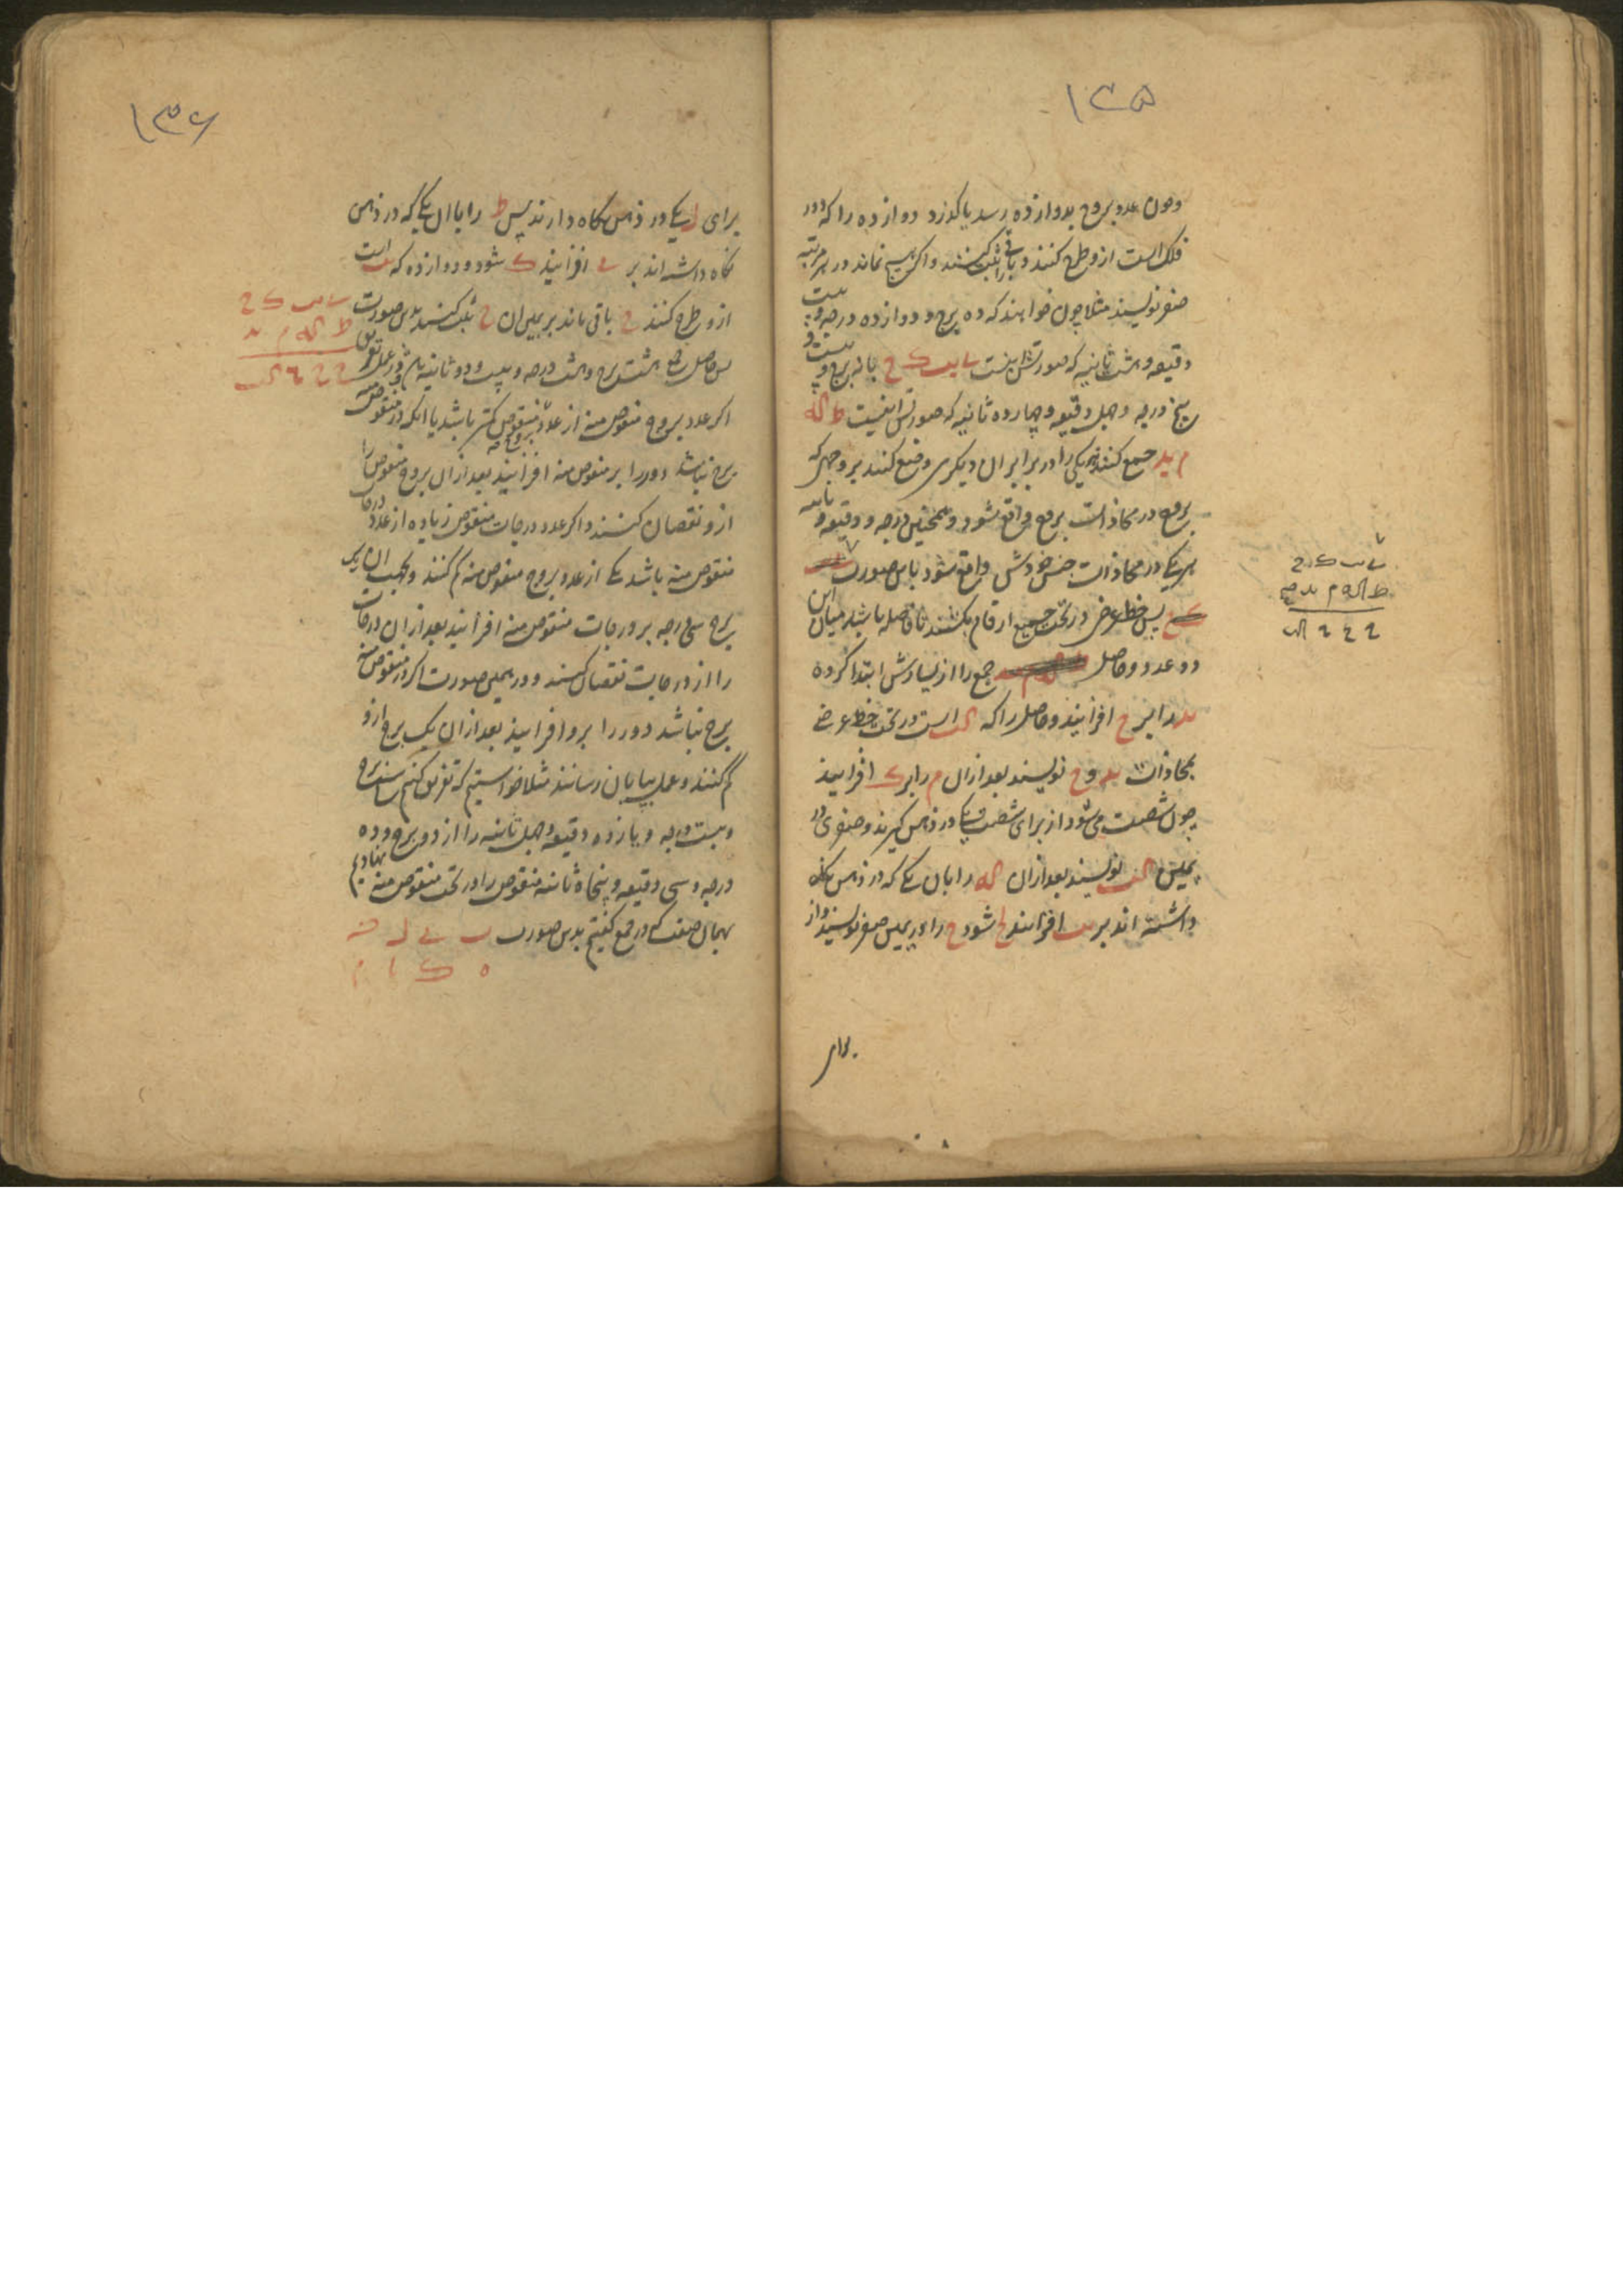 ۱۳۵
وچون عدد بروج بدوازده رسد یا گذرد دوازده را که دور
فلک است ازو طرح کنند و باقی را ثبت کنند و اگر هیچ نماند در مرتبه
صفر نویسند مثلا چون خواهند که ده برج و دوازده درجه و بیست
دقیقه و هشت ثانیه که صورتش اینست ی یب ک ح با نه برج و بیست و
پنج درجه و چهل دقیقه و چهارده ثانیه که صورتش اینست ط که
م ید جمع کنند هریکی را در برابر ان دیگری وضع کنند بر وجهی که
بروج در محاذات بروج واقع شود و همچنین درجه و دقیقه و ثانیه
هریکی در محاذات جنس خودش واقع شود باین صورت
پس خط عرضی در تحت جمیع ارقام بکشند تا فاصله باشد میان این
دو عدد و حاصل جمع را از یسارش ابتدا کرده
ید را بر ح افزایند و حاصل را که کب است در تحت خط عرضی
بمحاذات ید و ح نویسند بعد ازان م را بر ک افزایند
چون شصت می شود از برای شصت یکی در ذهن گیرند و صفری در
یمین کب نویسند بعد ازان که را بان یکی که در ذهن نگاه
داشته اند بر یب افزایند لح شود ح را در یمین صفر نویسند و از
برای
ی یب ک ح
ط که م ید
ح ح ۰ کب
۱۳۶
برای ل یکی در ذهن نگاه دارند پس ط را باان یکی که در ذهن
نگاه داشته اند بر ی افزایند ک شود و دوازده که یب است
ازو طرح کنند ح باقی ماند بر یمین ان ح ثبت کنند بدین صورت
ی یب ک ح
ط که م ید
ح ح ۰ کب
پس حاصل جمع هشت برج و هشت درجه و بیست و دو ثانیه باشد و در عمل تفریق
اگر عدد بروج منقوص منه از عدد بروج منقوص کمتر باشد یا انکه در منقوص منه
برج نباشد دور را بر منقوص منه افزایند بعد ازان بروج منقوص را
ازو نقصان کنند و اگر عدد درجات منقوص زیاده از عدد درجات
منقوص منه باشد یکی از عدد بروج منقوص منه کم کنند و بجهت ان یک
برج سی درجه بر درجات منقوص منه افزایند بعد ازان درجات
را از درجات نقصان کنند و در همین صورت اگر در منقوص منه
برج نباشد دور را برو افزایند بعد ازان یک برج ازو
کم کنند و عمل بپایان رسانند مثلا خواستیم که تفریق کنیم پنج برج
و بیست درجه و یازده دقیقه و چهل ثانیه را از دو برج و ده
درجه و سی دقیقه و پنجاه ثانیه منقوص را در تحت منقوص منه نهادیم
بهمان صفت که در جمع گفتیم بدین صورت ب ی ل ن
ه ک یا م